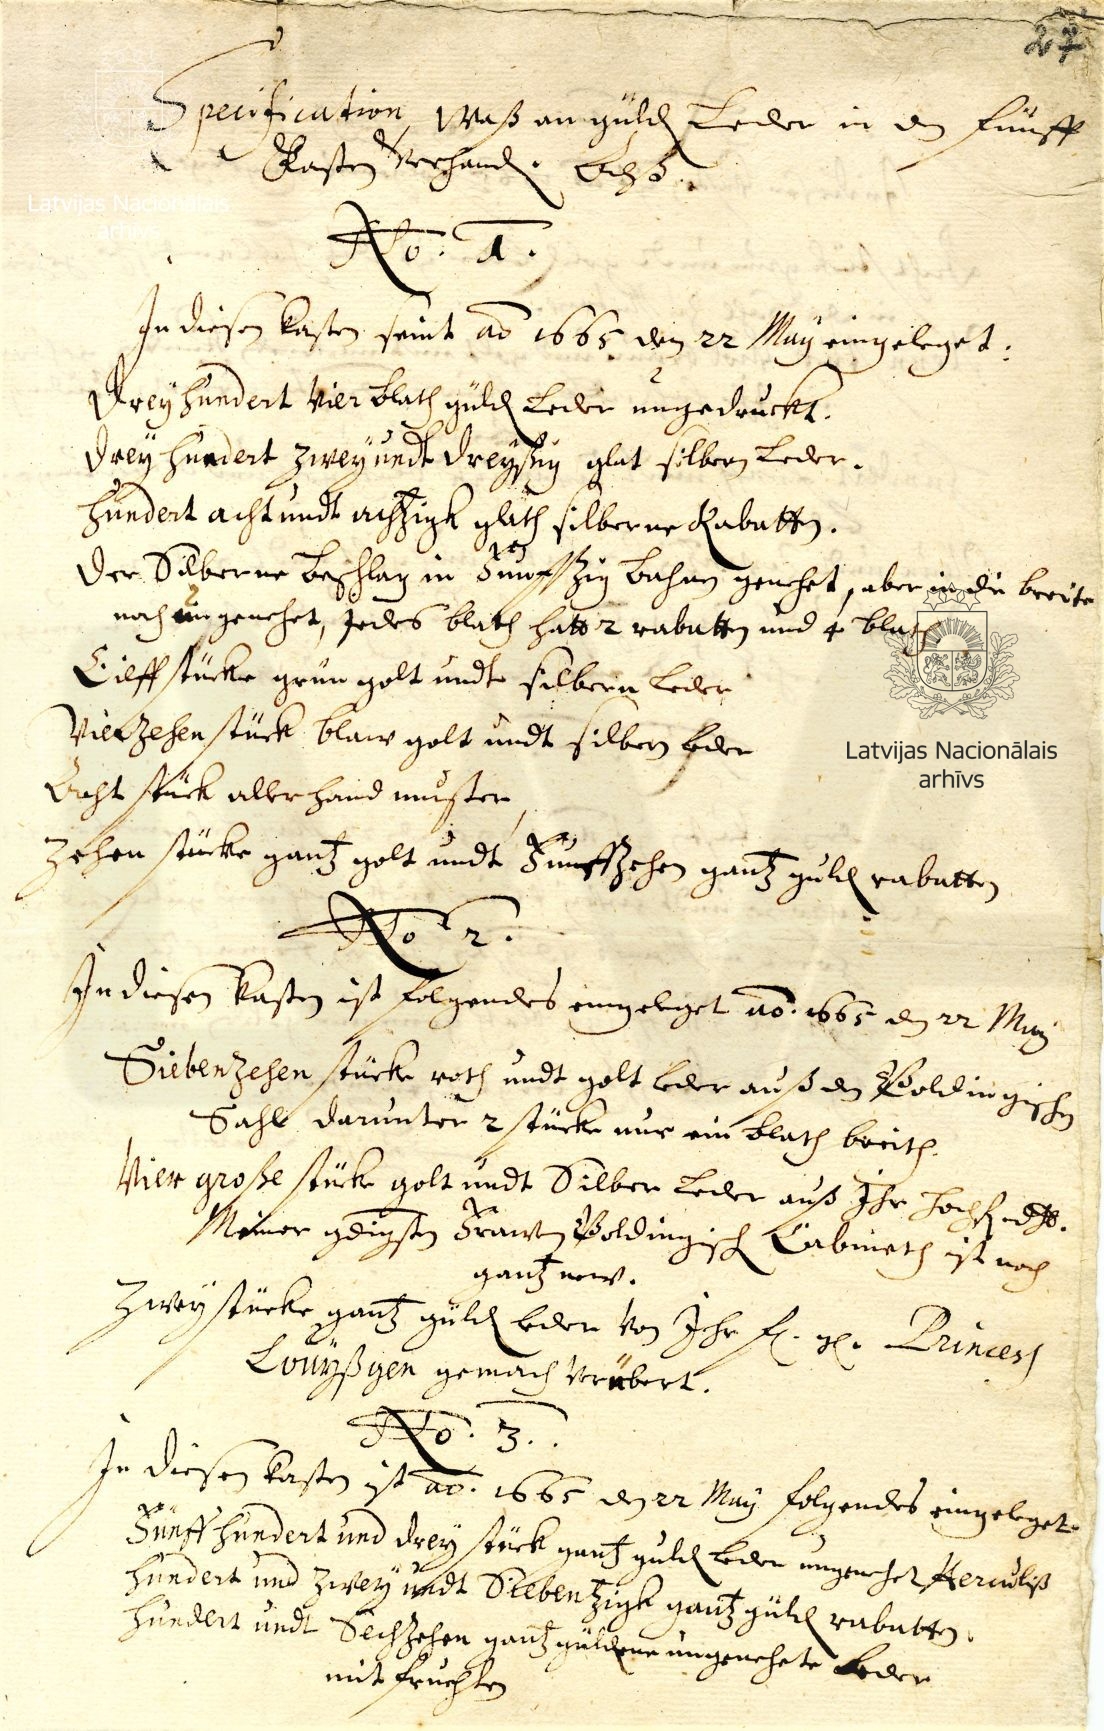 27
Specification Waß an güld Leder in den fünff
Kasten Verhand.
No. 1.
In diesen Kasten seint ao 1665 den 22 May eingeleget:
Drey hundert Vier blath güld Leder ungedruckt.
Drey hundert zwey undt dreyssig glat silbern Leder.
Hundert acht undt achtzigk glath silberne Rabatten.
Der Silberne beschlag in Funfftzig bahnen genehet, aber in die breite
noch ungenehet, Jedes blath hatt 2 rabatten und 4 blath
Eilff stücke grün golt undt silbern Leder
Vierzehen stück blaw golt undt silbern Leder
Acht stück aller hand muster
Zehen stücke gantz golt undt Funffzehen gantz guld rabatten
No 2.
In diesen Kasten ist folgendes eingeleget ao. 1665 den 22 May
Siebenzehen stücke roth undt golt Leder auß den Goldingischen
Sahl darunter 2 stücke nur ein blath breith.
Vier große stücke golt undt Silber Leder auß Ihr
Meiner gdigsten Frawen Goldingisch Cabineth ist noch
gantz new.
Zwey stücke gantz güld Leder Von Ihr fl. gl. Princess
Louyßgen gemach verübert.
No. 3.
In diesen Kasten ist ao. 1665 den 22 May folgendes eingeleget.
Fünff hundert und drey stück gantz guld Leder ungenehet Herculiß
Hundert und zwey undt Siebentzigk gantz güld rabatten.
Hundert undt Sechzehen gantz güldene ungenehete Leder
mit fruchten
Latvijas Nacionālais
arhīvs
Latvijas Nacionālais
arhīvs